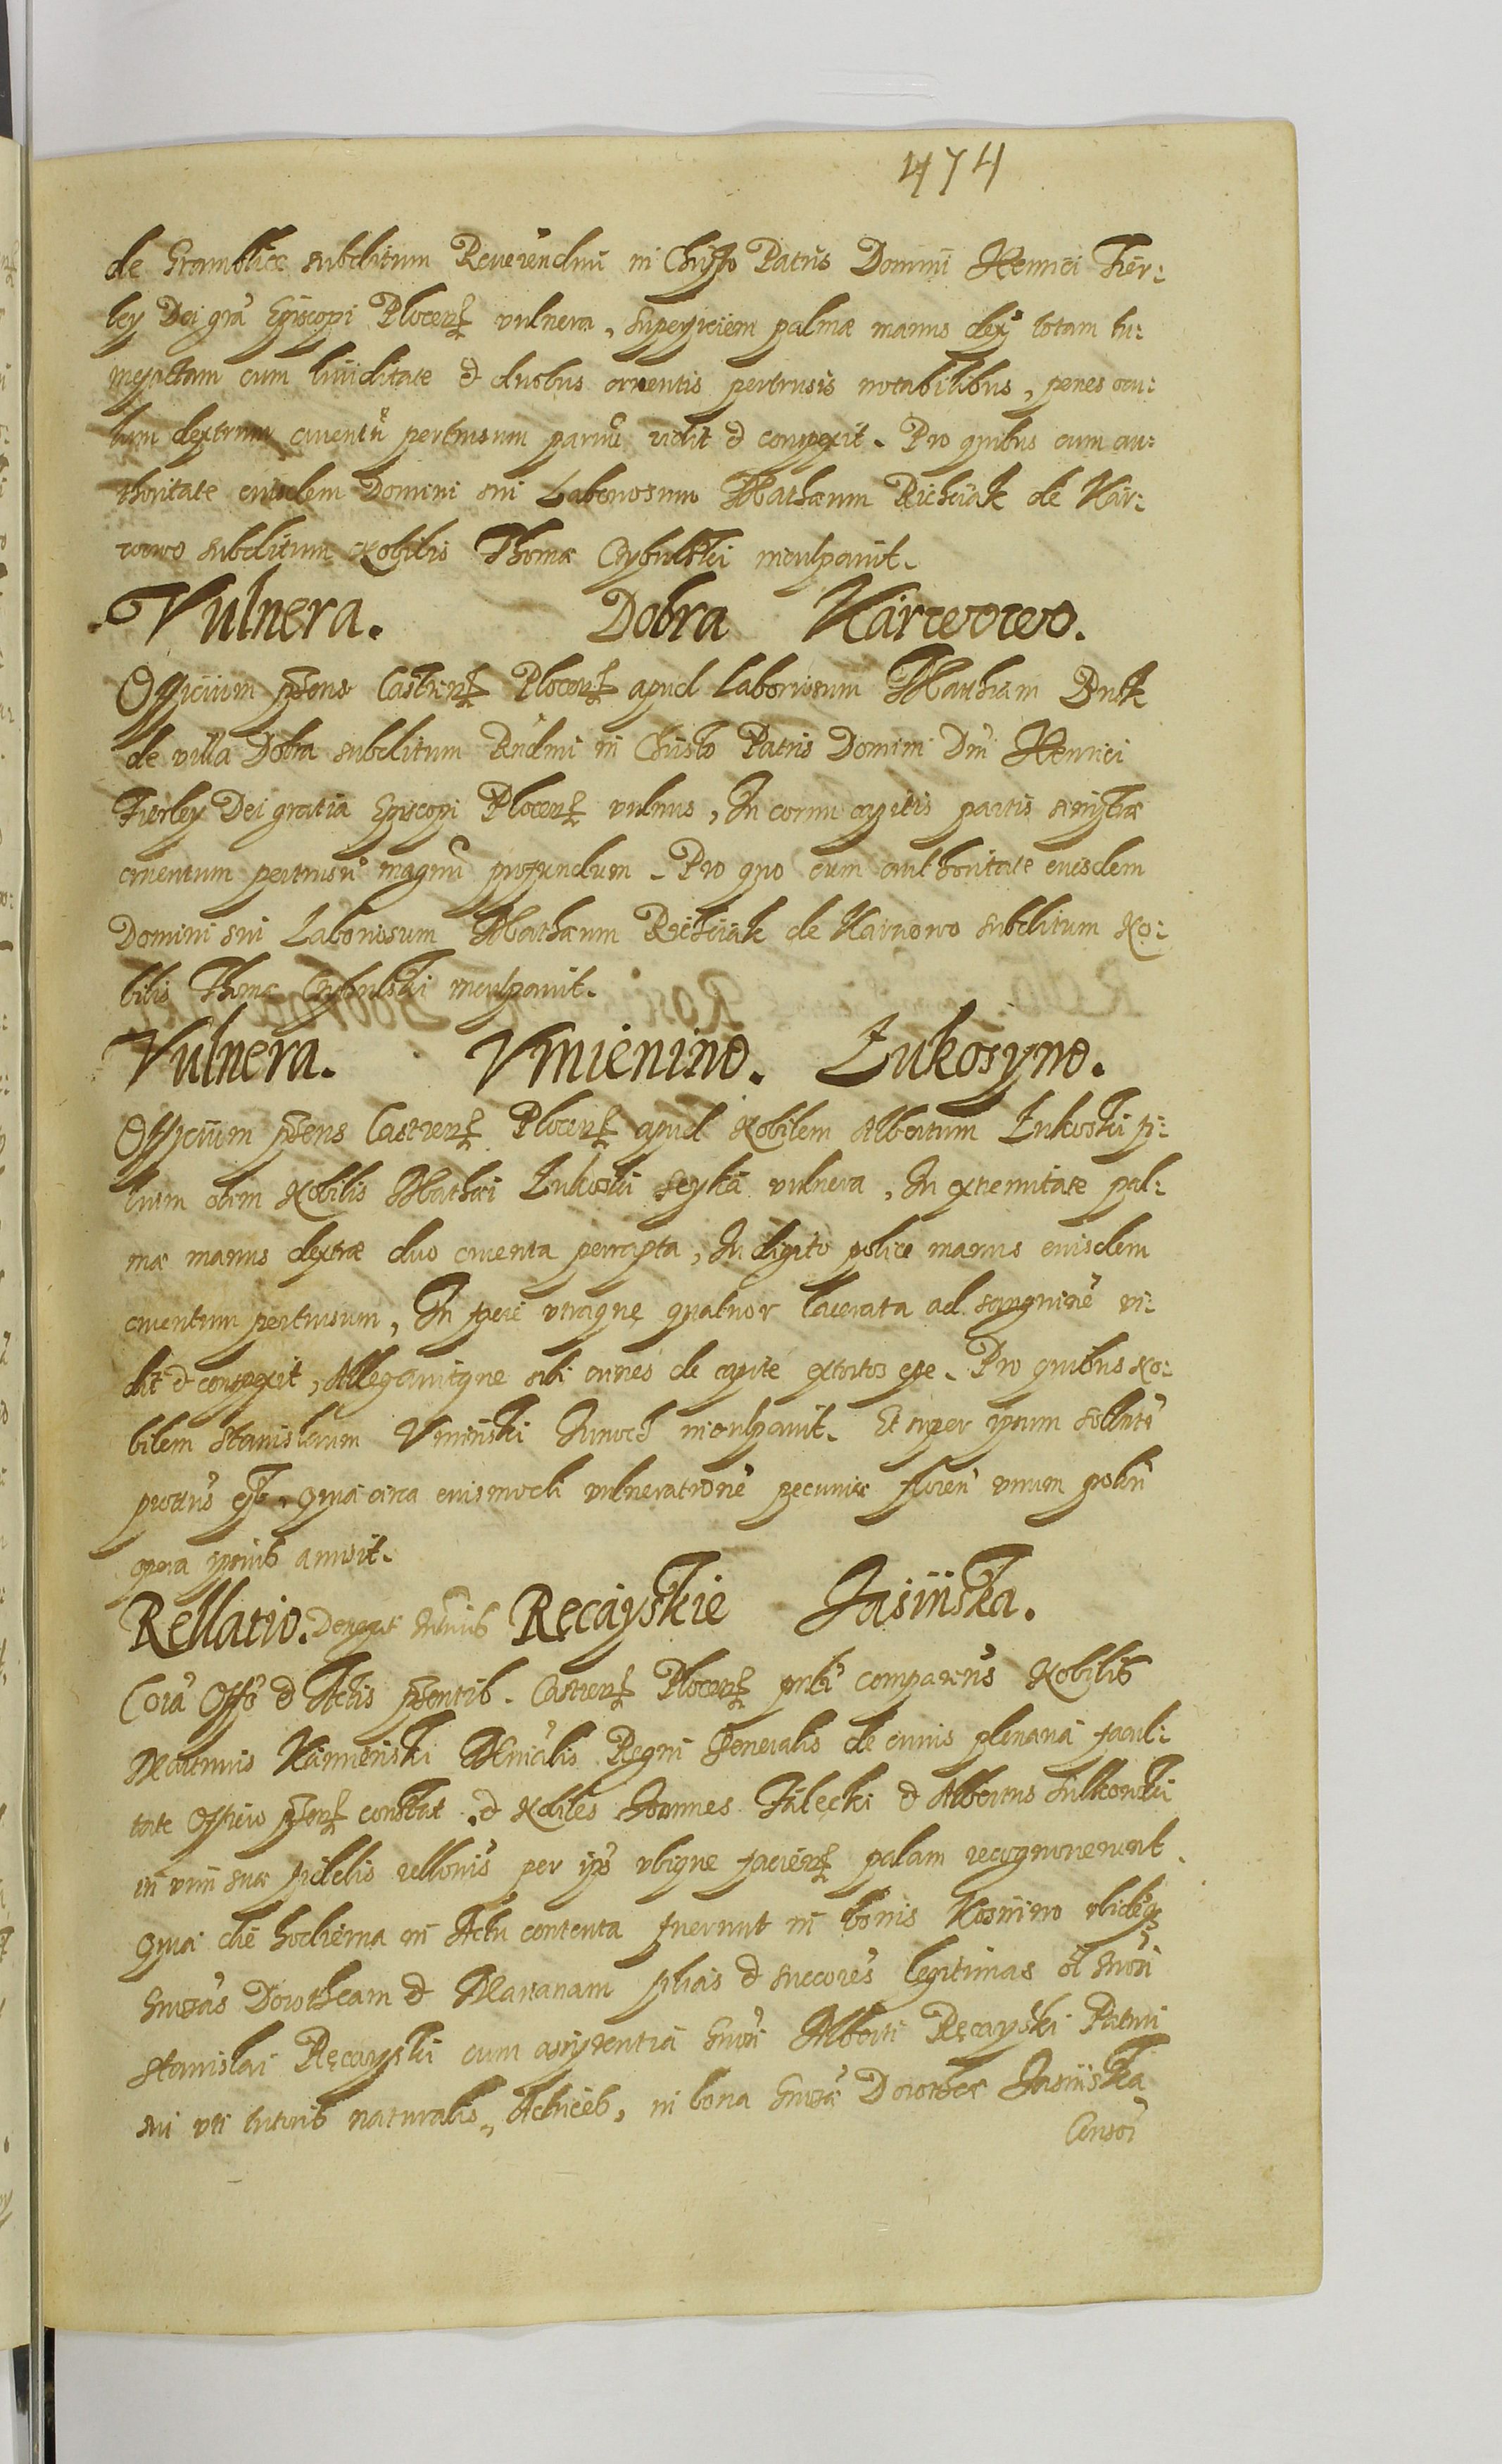 474
de Gramblice subditum Reuerendmi in Christo Patris Domini Henrici Fier:
ley Dei gra Episcopi Plocen vulnera, Superficiem palmæ manus dex totam tu:
mefactam cum liuiditate et duobus cruentis pertrusis notabilibus, penes ocu:
lum dextrum cruentu pertrusum paruu vidit et conspexit. Pro quibus cum au:
thoritate eiusdem Domini sui Laboriosum Mathæum Richciak de Kar:
wowo subditum Nobilis Thomæ Cybulski inculpauit.
Vulnera. Dobra Karwowo.
Officium pns Castren Plocen apud Laboriosum Mathiam Bulk
de villa Dobra subditum Rndmi in Christo Patris Domini Dni Henrici
Fierley Dei gratia Episcopi Plocen vulnus, In cornu capitis partis sinistræ
cruentum pertrusu magnu profundum. Pro quo cum authoritate eiusdem
Domini sui Laboriosum Mathæum Richciak de Karwowo subditum No:
bilis Thomæ Cybulski inculpauit.
Vulnera. Vmienino. Łukosyno.
Officium pns Castren Plocen apud Nobilem Albertum Łukoski fi:
lium olim Nobilis Mathæi Łukoski Seyka vulnera, In extremitate pal:
mæ manus dextræ duo cruenta perrapta, In digito police manus eiusdem
cruentum pertrusum, In facie vtraque quatuor lacerata ad sanguine vi:
dit et conspexit, Allegauitque sibi crines de capite extortos esse. Pro quibus No:
bilem Stanislaum Vminski inculpauit. Et super ipsum
est, Quia circa eiusmodi vulneratione pecuniæ floren vnum
opera ipsius amisit.
Rellatio. Ręcayskie Jasinska.
Cora Offo et Actis pntib. Castren Plocen comparens Nobilis
Martinus Kamienski Mnialis Regni Generalis de cuius plenaria facul:
tate Officio pnti constat. et Nobiles Joannes Filecki et Albertus Sulkowski
in vim suæ fidelis rellonis per ipsos vbique facien palam recognouerunt.
Quia die hodierna in Actu contenta fuerunt in bonis Kosmino
Gnosas Dorotheam et Marianam filias et succores legitimas ol Gnosi
Stanislai Ręcayski cum assistentia Gnosi Alberti Ręcayski Patrui
sui vti tutoris naturalis, in bona Gnosæ Dorotheæ Jasinska
Censoi